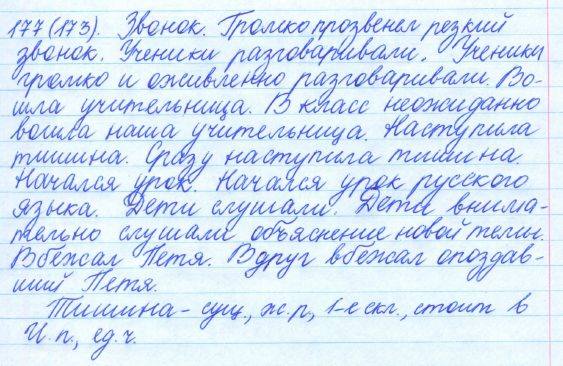 177 (173). Звонок. Громко прозвенел резкий
звонок. Ученики разговаривали. Ученики
громко и оживленно разговаривали. Во-
шла учительница. В класс неожиданно
вошла наша учительница. Наступила
тишина. Сразу наступила тишина.
Начался урок. Начался урок русского
языка. Дети слушали. Дети внима-
тельно слушали объяснение новой темы.
Вбежал Петя. Вдруг вбежал опоздав-
ший Петя.
Тишина – сущ., ж.р., 1-е скл., стоит в
И.п., ед.ч.